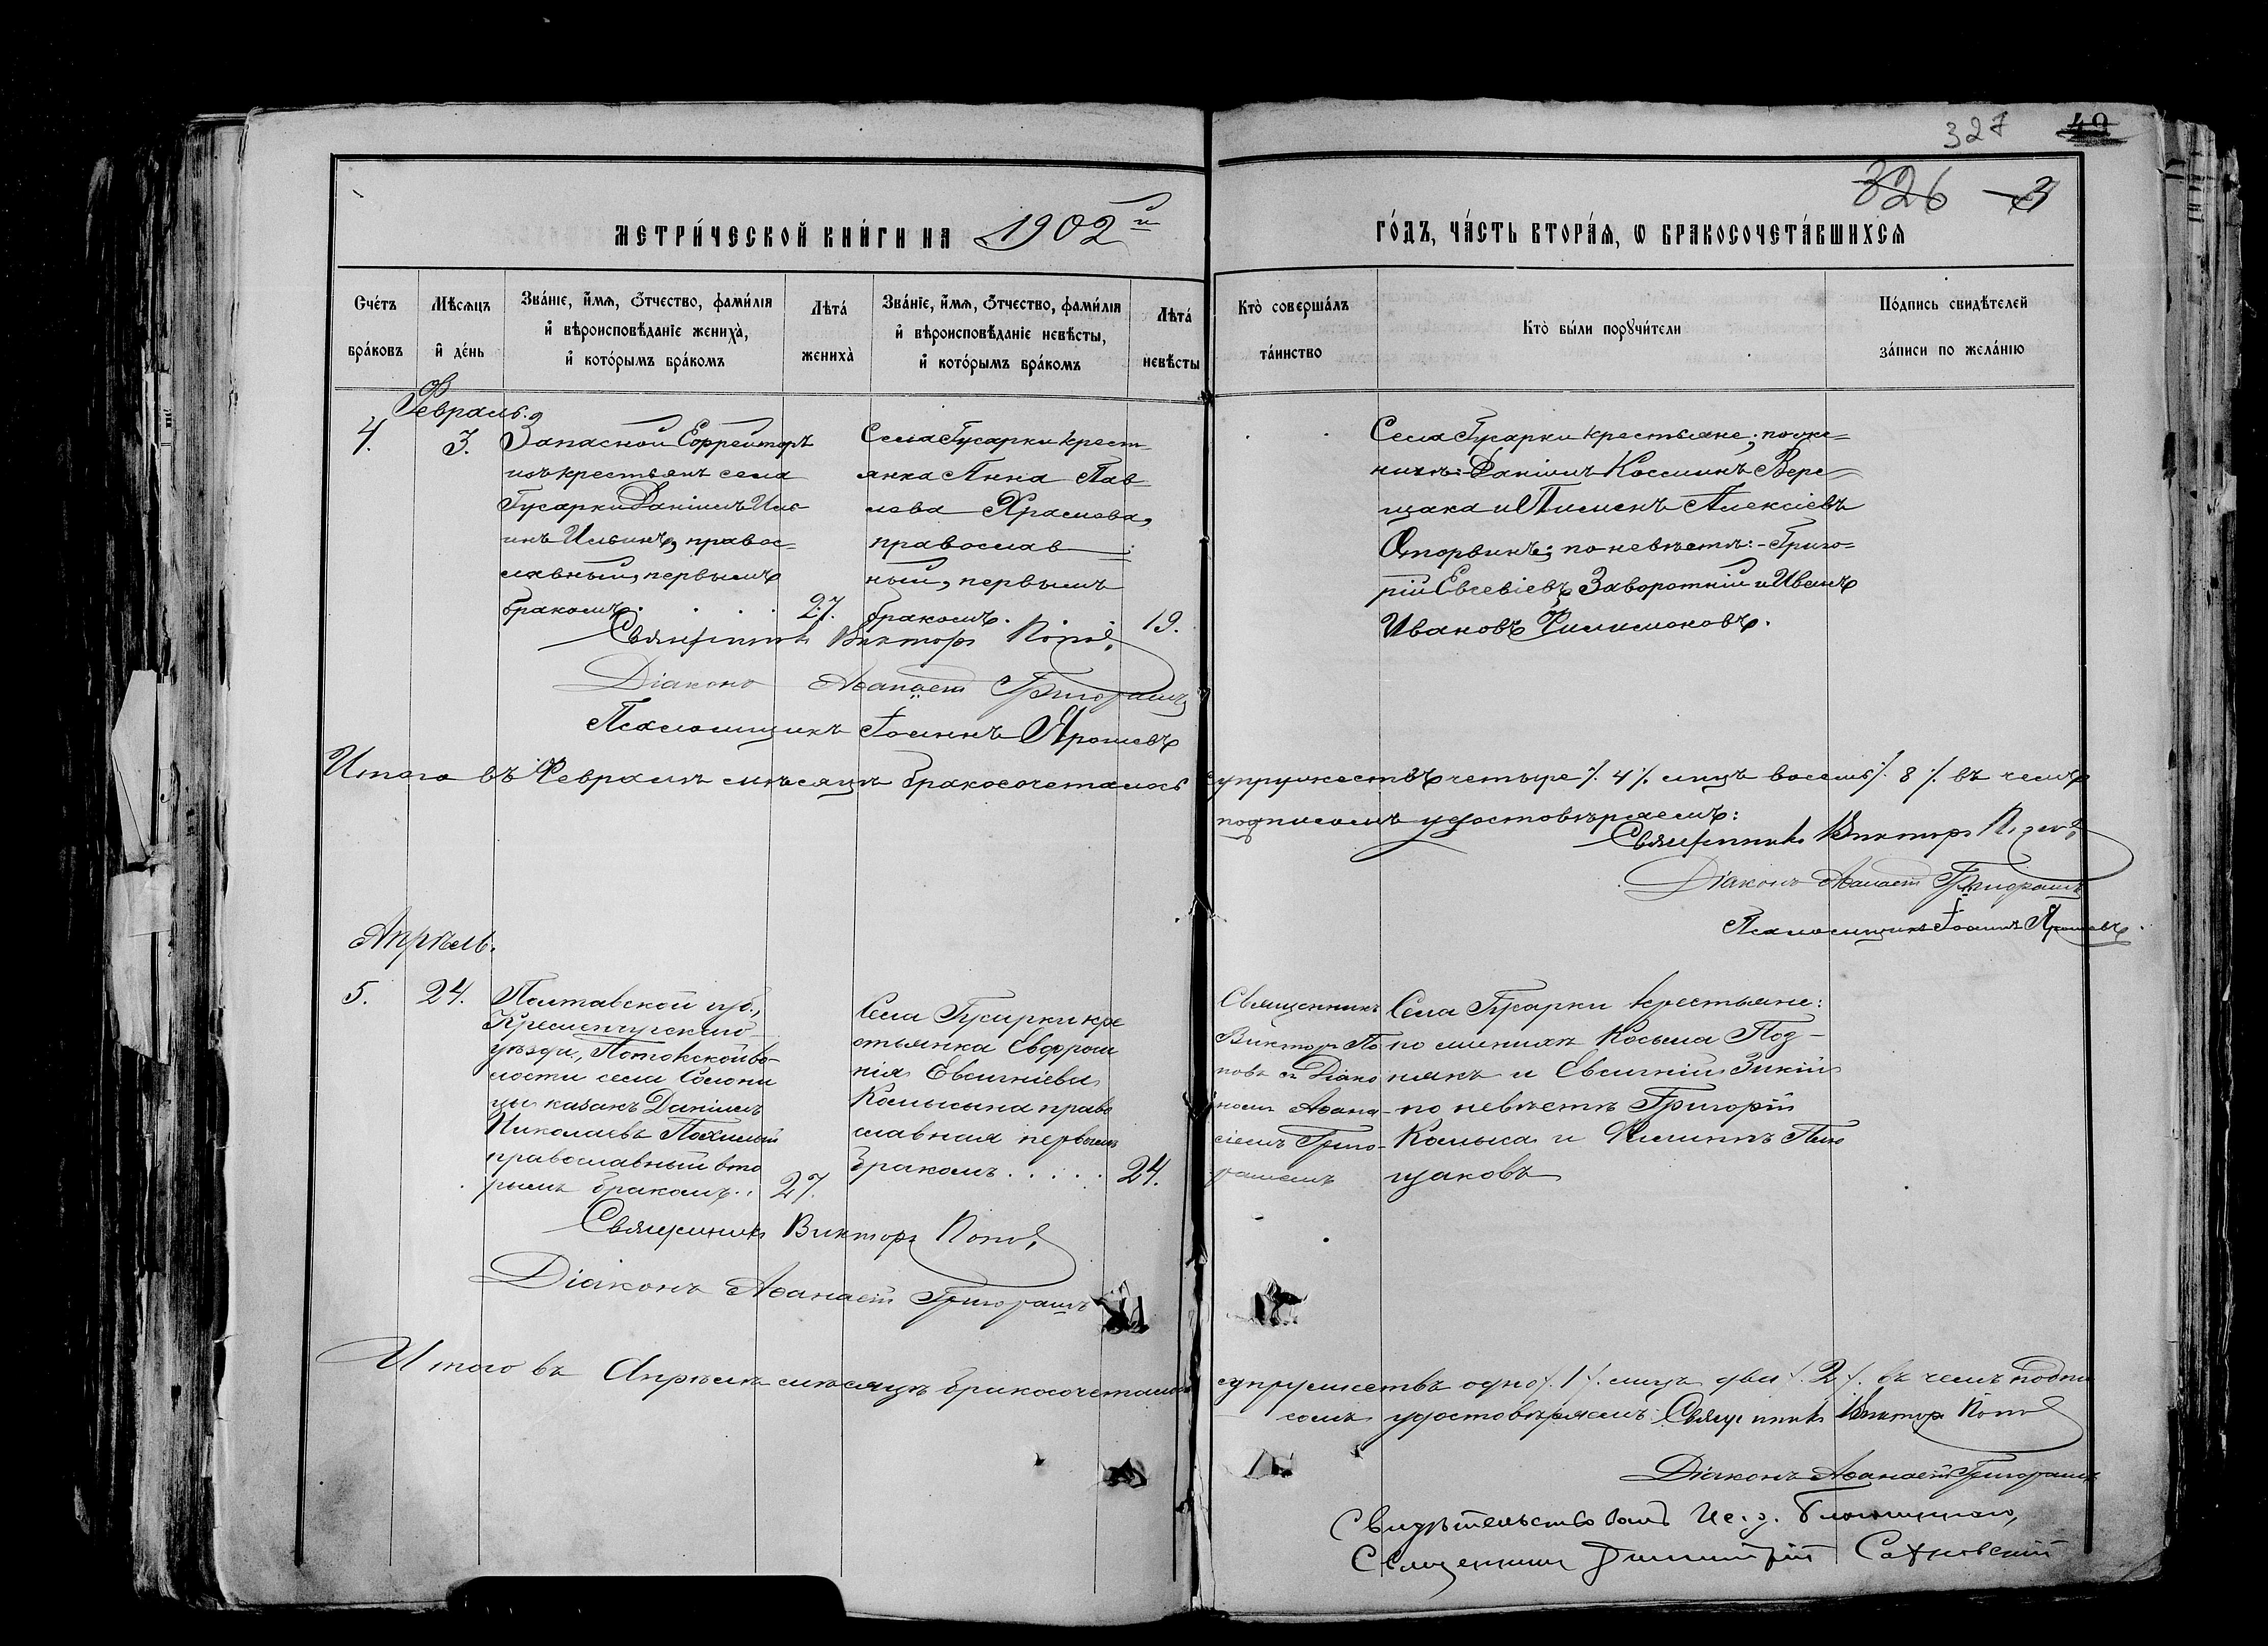 327 49
326 3
МЕТРИ́ЧЕСКОЙ КНИ́ГИ НА 1902й
ГО́ДЪ, ЧА́СТЬ ВТОРА́Я, Ѡ БРАКОСОЧЕТА́ВШИХСЯ
Счéтъ брáковъ
Мѣ́сяцъ и҆ дéнь
Звáнїе, и҆́мя, ѻ҆́тчество, фами́лїя и҆ вѣроисповѣ́данїе женихà, и҆ котóрымъ брáкомъ
Лѣтá женихà
Звáнїе, и҆́мя, ѻ҆́тчество, фами́лїя и҆ вѣроисповѣ́данїе невѣ́сты, и҆ котóрымъ брáкомъ
Лѣтá невѣ́сты
Ктò совершáлъ тáинство
Ктò бы́ли порꙋчи́тели
Пóдпись свидѣ́телей зáписи по желáнїю
Февраль.
4.
3.
Запасной Ефрейторъ
изъ крестьянъ села
Гусарки Даніилъ Иль-
инъ Ильинъ, правос-
лавный, первымъ
бракомъ.
27.
Села Гусарки крест-
янка Анна Пав-
лова Храмова,
православ
ной, первымъ
бракомъ.
19.
Села Гусарки крестьяне; по же-
нихѣ: Даніилъ Косминъ Вере-
щака и Пименъ Алексіевъ
Оторвинъ; по невѣстѣ: Григо-
рій Евсевіевъ Заворотній и Иванъ
Ивановъ Филимоновъ.
Священникъ Викторъ Поповъ
Діаконъ Аѳанасій Григорашъ
Псаломщикъ Іоаннъ Ярошевъ
Итого въ Февралѣ мѣсяцѣ бракосочеталось супружествъ четыре ./. 4 ./. лицъ восемь ./. 8 ./. въ чемъ
подписомъ удостовѣряемъ:
Священникъ Викторъ Поповъ
Діаконъ Аѳанасій Григорашъ
Псаломщикъ Іоаннъ Ярошевъ.
Апрѣль.
5.
24.
Полтавской губ.,
Кременчугскаго
уѣзда, Потокской во-
лости села Солони
цы казакъ Даніилъ
Николаевъ Похилый
православный вто
рымъ бракомъ.
27.
Села Гусарки кре
стьянка Евфроси
нія Евсигніева
Комысына право
славная первымъ
бракомъ.
24.
Священникъ
Викторъ По
повъ съ Діако
номъ Аѳана-
сіемъ Григо-
рашемъ
Села Гусарки крестьяне:
по женихѣ Косьма Поз-
някъ и Евсигній Зикій
по невѣстѣ Григорій
Комыса и Филиппъ
щаковъ
Священникъ Викторъ Поповъ
Діаконъ Аѳанасій Григорашъ
Итого въ Апрѣлѣ мѣсяцѣ бракосочеталось супружествъ одно ./. 1 ./. лицъ два ./. 2 ./. въ чемъ подпи
сомъ удостовѣряемъ: Священникъ Викторъ Поповъ
Діаконъ Аѳанасій Григорашъ
Свидѣтельствовалъ Ис. д. Благочиннаго,
Священникъ Димитрій Сахновскій